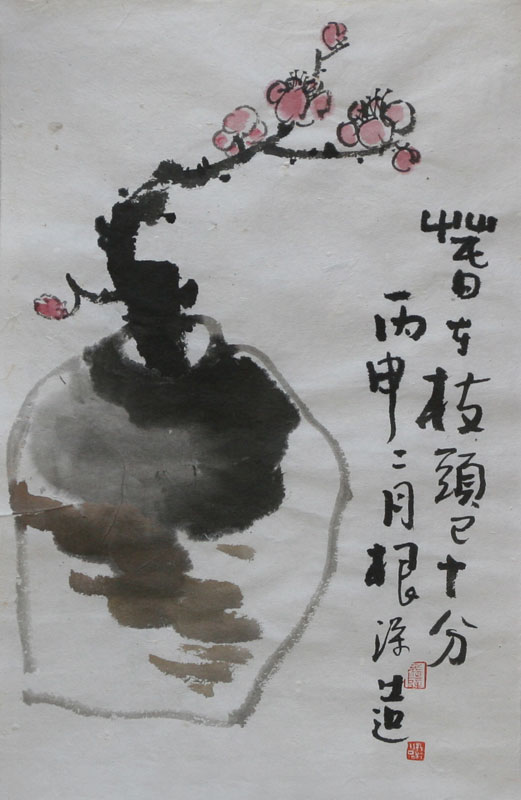 萅在枝頭已十分
丙申二月根深造